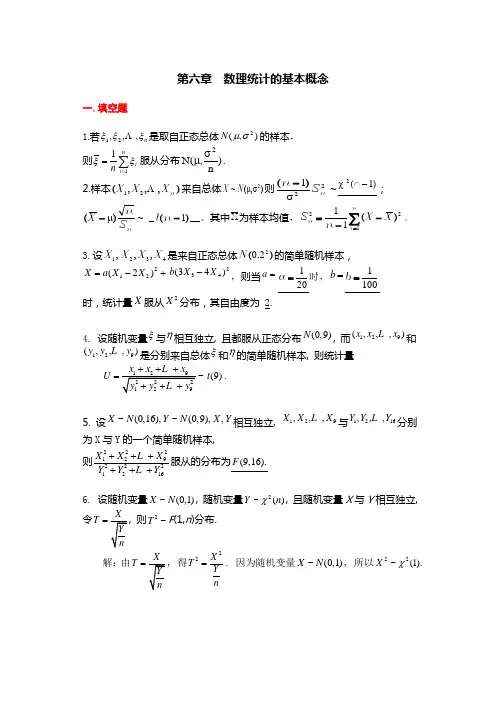 第六章 数理统计的基本概念
一.填空题
1.若ξ₁,ξ₂,Λ,ξₙ是取自正态总体N(μ,σ²)的样本,
则ξ̄=1/n ∑ᵢ₌₁ⁿ ξᵢ 服从分布N(μ,σ²/n).
2.样本(X₁,X₂,Λ,Xₙ)来自总体X~N(μ,σ²)则(n-1)/σ² Sₙ² ~ χ²(n-1);
(X̄-μ)√n/Sₙ ~ _t(n-1)__。其中X̄为样本均值,Sₙ²=1/(n-1) ∑ᵢ₌₁ⁿ (X-X̄)²。
3. 设X₁,X₂,X₃,X₄是来自正态总体N(0.2²)的简单随机样本,
X=a(X₁-2X₂)²+b(3X₃-4X₄)²,则当a=a=1/20时,b=b=1/100
时,统计量X服从X²分布,其自由度为 2.
4. 设随机变量ξ与η相互独立, 且都服从正态分布N(0,9), 而(x₁,x₂,L,x₉)和
(y₁,y₂,L,y₉)是分别来自总体ξ和η的简单随机样本, 则统计量
U=(x₁+x₂+L x₉)/√(y₁²+y₂²L+y₉²) ~ t(9).
5. 设X~N(0,16),Y~N(0,9),X,Y相互独立, X₁,X₂,L,X₉与Y₁,Y₂,L,Y₁₆分别
为X与Y的一个简单随机样本,
则(X₁²+X₂²+L X₉²)/(Y₁²+Y₂²L+Y₁₆²)服从的分布为F(9,16).
6. 设随机变量X~N(0,1), 随机变量Y~χ²(n), 且随机变量X与Y相互独立,
令T=X/√(Y/n), 则T²~F(1,n)分布.
解:由T=X/√(Y/n), 得T²=X²/(Y/n). 因为随机变量X~N(0,1), 所以X²~χ²(1).